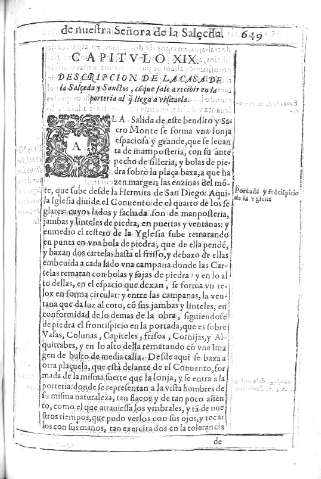 de nuestra Señora de la Salçeda. 649
CAPITVLO XIX.
DESCRIPCION DE LA CASA DE
la Salçeda y Sanctos, cõ que sale a recibir en la
porteria al q̃ llega a visitarla.
A LA Salida de este bendito y Sa
cro Monte se forma vna lonja
espaciosa y grande, que se leuan
ta de mamposteria, con su ante
pecho de silleria, y bolas de pie
dra sobro la plaça baxa, a que ha
zen margen las enzinas del mõ-
te, que sube desde la Hermita de San Diego: Aqui
la Iglesia diuide el Conuento de el quarto de los se
glares: cuyos lados y fachada son de manposteria,
jambas y linteles de piedra, en puertas y ventanas: y
enmedio el testero de la Yglesia sube rematando
en punta en vna bola de piedra; que de ella pende,
y baxan dos cartelas hasta el frisso, y debaxo de ellas
embeuida a cada lado vna campana donde las Car
telas rematan con bolas y fajas de piedra: y en lo al
to dellas, en el espacio que dexan, se forma vn re-
lox en forma circular: y entre las campanas, la ven-
tana que da luz al coro, cõ sus jambas y linteles, en
conformidad de lo demas de la obra, siguiendose
de piedra el frontispicio en la portada, que es sobre
Vasas, Colunas, Capiteles, frisos, Cornijas, y Al-
quitrabes, y en lo alto della rematando cõ vna Ima
gen de bulto de media talla. Desde aqui se baxa a
otra plaçuela, que está delante de el Conuento, for
mada de la misma suerte que la lonja, y se entra a la
porteria: donde se representan a la vista hombres de
su misma naturaleza, tan flacos y de tan poco alien
to, como el que atrauiessa los vmbrales, y tã de nue
stros tiempos, que pudo verlos con sus ojos, y tocar
los con sus manos, tan exercitados en la tolerancia
de
Portada y Frõtispicio
de la Yglesia